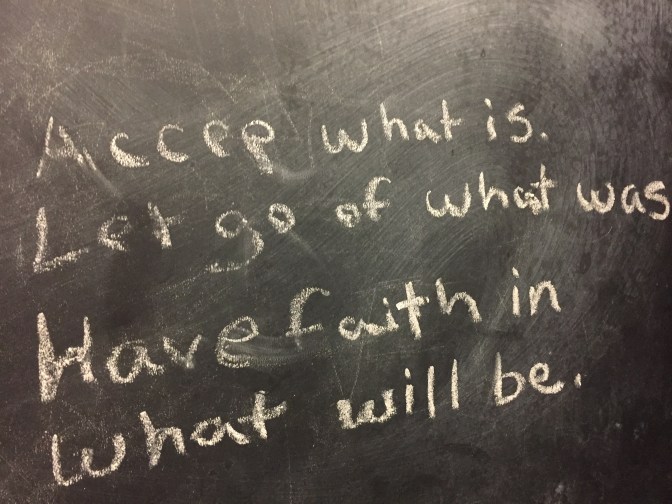 Accep what is.
Let go of what was
Have faith in
what will be.